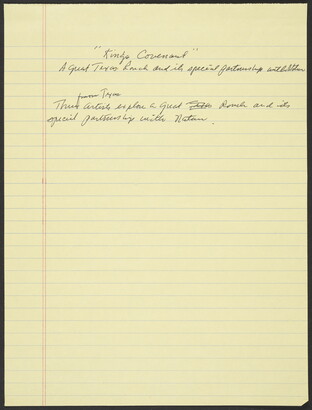 "Kings Covenant"
A Great Texas Ranch and its special partnership with Nature
from Texas
Three Artists explore a great Ranch and its
special partnership with Nature.